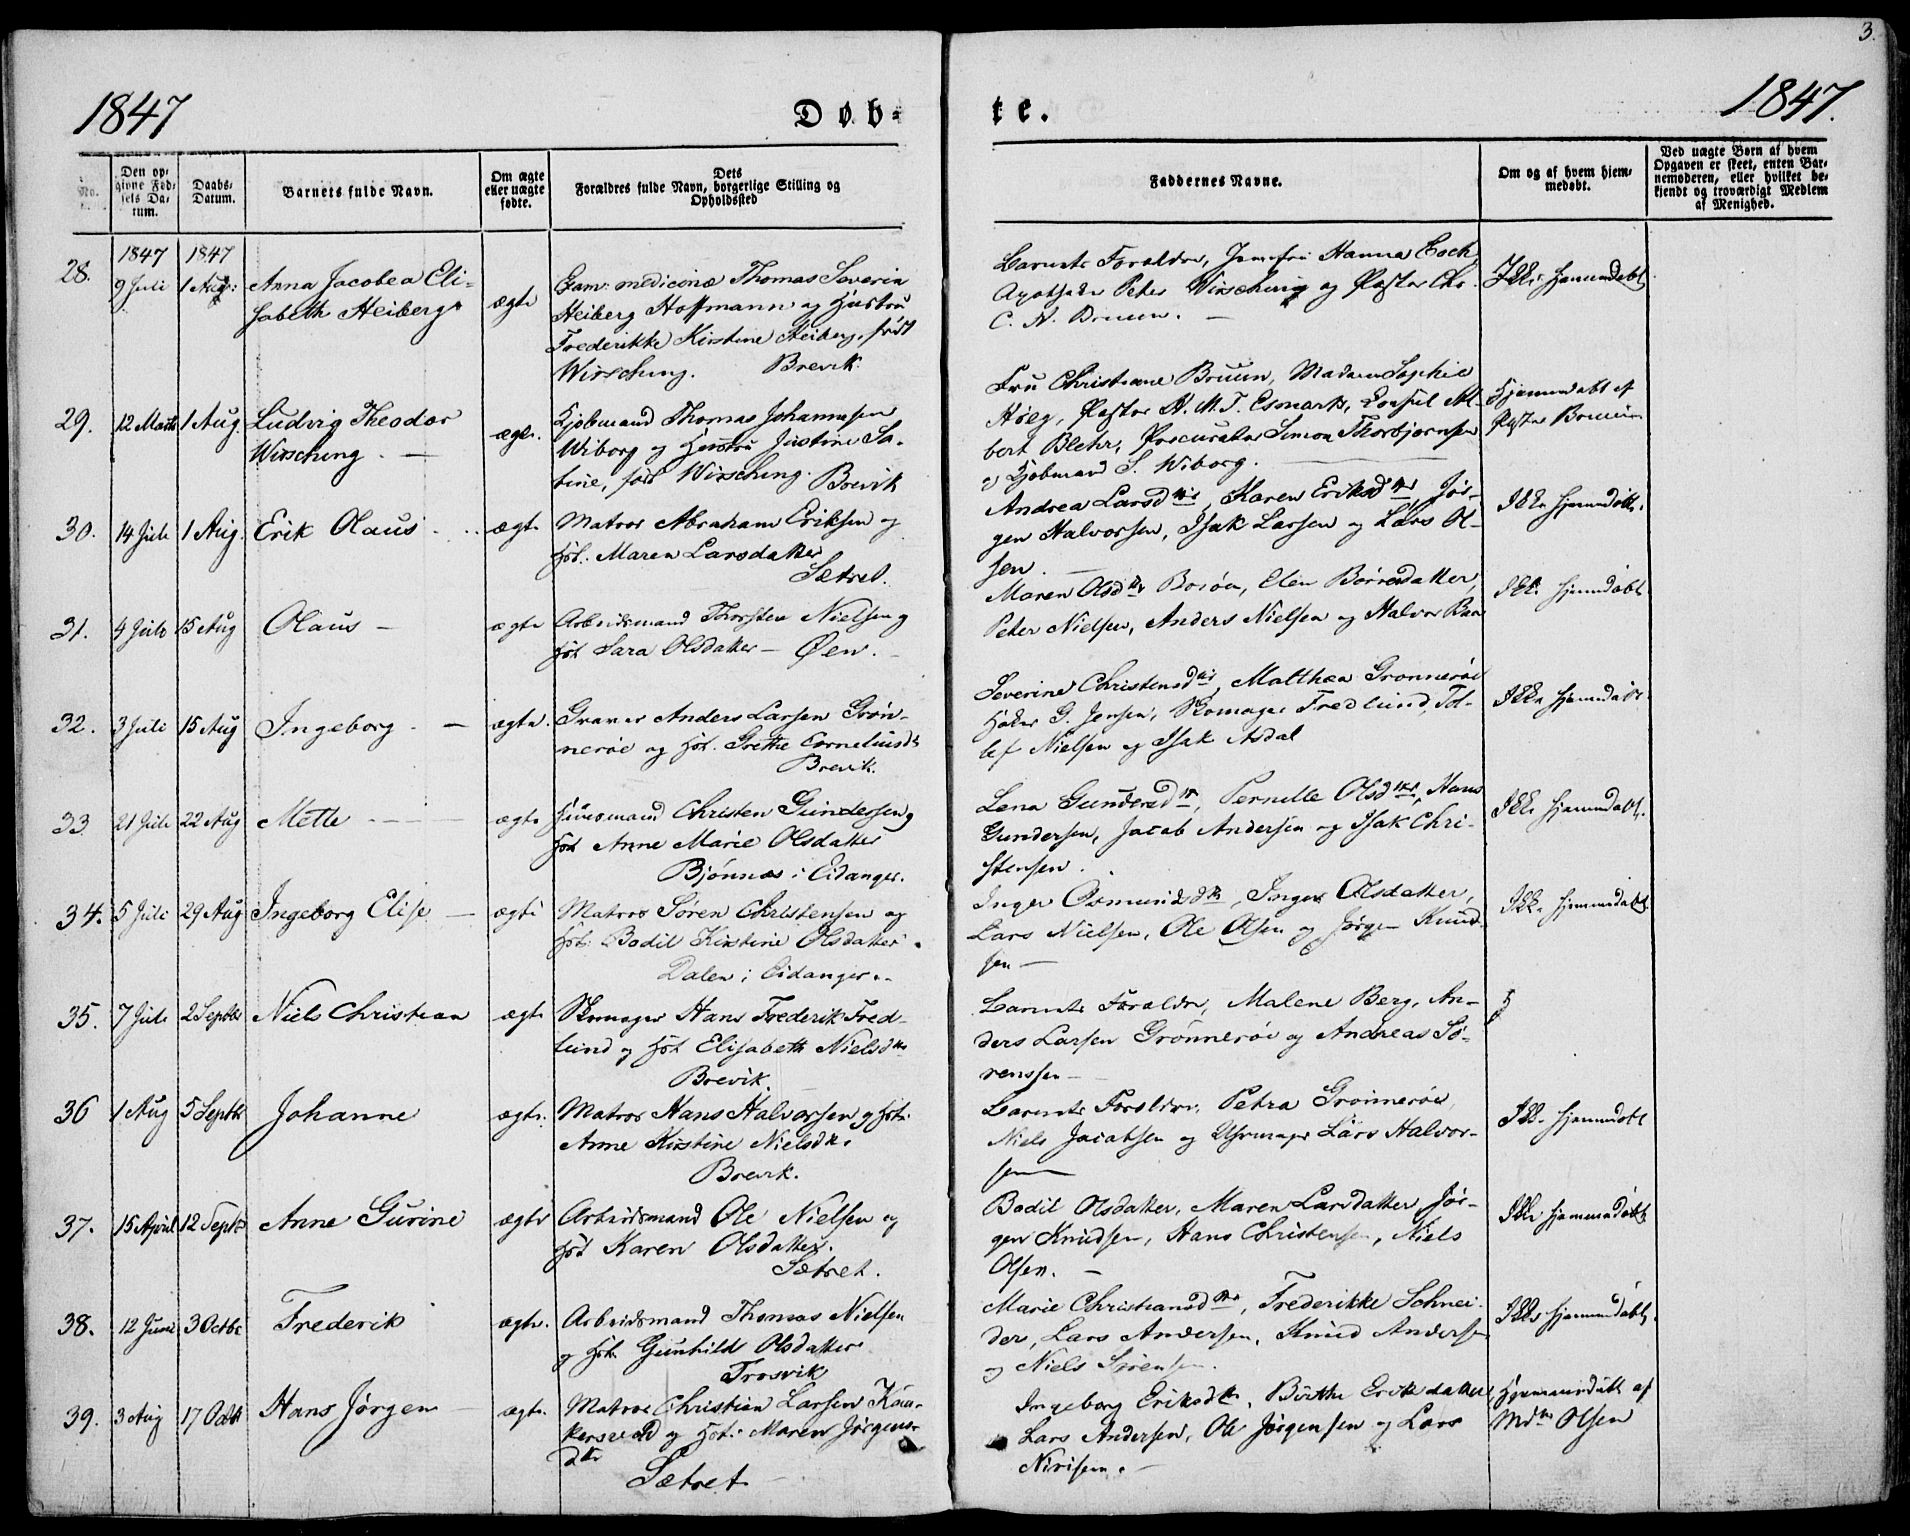 3.
1847 Døb- te. 1847.
No.
Den opgivne Fødsels Datum.
Daabs-Datum.
Barnets fulde Navn.
Om ægte eller uægte fødte.
Dets Forældres fulde Navn, borgerlige Stilling og Opholdssted
Faddernes Navne.
Om og af hvem hjemmedøbt.
Ved uægte Børn af hvem Opgaven er skeet, enten Barnemoderen, eller hvilket bekjendt og troværdigt Medlem af Menighed.
1847 1847
28. 9 Juli 1 Aug: Anna Jacobea Eli-
sabeth Heiberg
ægte
Exam: medicinæ Thomas Severin
Heiberg Hoffmann og Hustru
Frederikke Kirstine Heiberg, født
Wirsching. Brevik.
Barnets Forældre, Jomfru Hanna
Apotheker Peter Wirsching og Pastor Chr.
C. A. Bruun. —
Ikke hjemmedøbt
29. 12 Marts 1 Aug. Ludvig Theodor
Wirsching. —
ægte.
Kjøbmand Thomas Johannesen
Wiborg og Hustru Justine Sa-
bine, født Wirsching. Brevik
Fru Christiane Bruun, Madam Sophie
Høeg, Pastor H. M. T. Esmark, Consul Al-
bert Blehr, Procurator Simon Thorbjørnsen
og Kjøbmand S. Wiborg.
Hjemmedøbt af
Pastor Bruun
30. 14 Juli 1 Aug. Erik Olaus
ægte
Matros Abraham Eriksen og
Hst. Maren Larsdatter
Sætret.
Andrea Larsdtr, Karen Eriksdtr, Jør-
gen Halvorsen, Isak Larsen og Lars Ol-
sen. —
Ikke hjemmedøbt.
31. 4 Juli 15 Aug Olaus —
ægte
Arbeidsmand Thorsten Nielsen og
Hst Sara Olsdatter — Øen. —
Maren Olsdtr Borøen, Elen Børresdatter,
Peter Nielsen, Anders Nielsen og Halvor
Ikke hjemmedøbt
32. 3 Juli 15 Aug Ingeborg. —
ægte.
Graver Anders Larsen Grøn-
nerøe og Hst. Grethe Corneliusdt
Brevik.
Severine Christensdtr, Matthea Grønnerøe
G. Jensen, Skomager Fredlund, Tol-
lef Nielsen og Isak Asdal
Ikke hjemmedøbt
33 21 Juli 22 Aug Mette —
ægte
Huusmand Christen Gundersen og
Hst Anne Marie Olsdatter
Bjønnes i Eidanger.
Lena Gundersdtr, Pernille Olsdtr, Hans
Gundersen, Jacob Andersen og Isak Chri-
stensen.
Ikke hjemmedøbt.
34. 5 Juli 29 Aug Ingeborg Elise —
ægte
Matros Søren Christensen og
Hst. Bodil Kirstine Olsdatter.
Dalen i Eidanger.
Inger Osmundsdtr, Inger Olsdatter,
Lars Nielsen, Ole Olsen og Jørgen Knud-
sen —
Ikke hjemmedøbt
35. 7 Juli 2 Septbr Niels Christian
ægte
Skomager Hans Frederik Fred-
lund og Hst Elisabeth Nielsdtr
Brevik.
Barnets Forældre, Malene Berg, An-
ders Larsen Grønnerøe og Andreas Sø-
renssen —
36 1 Aug 5 Septbr Johanne
ægte.
Matros Hans Halvorsen og Hst.
Anne Kirstine Nielsdtr
Brevik.
Barnets Forældre, Petra Grønnerøe,
Niels Jacobsen og Uhrmager Lars Halvor-
sen
Ikke hjemmedøbt
37. 15 April 12 Septbr Anne Gurine
ægte
Arbeidsmand Ole Nielsen og
Hst Karen Olsdatter.
Sætret.
Bodil Olsdatter, Maren Larsdatter, Jør-
gen Knudsen, Hans Christensen, Niels
Olsen. —
Ikke hjemmedøbt
38. 12 Juni 3 Octbr Frederik
ægte.
Arbeidsmand Thomas Nielsen
og Hst. Gunhild Olsdatter
Trosvik
Marie Christiansdtr, Frederikke Schnei-
der, Lars Andersen, Knud Andersen
og Niels Sørensen.
Ikke hjemmedøbt.
39. 3 Aug 17 Octbr Hans Jørgen —
ægte.
Matros Christian Larsen
og Hst. Maren Jørgens-
dtr
Sætret —
Ingeborg Eriksdtr, Birthe Eriksdatter,
Lars Andersen, Ole Jørgensen og Lars
Hjemmedøbt af
Olsen